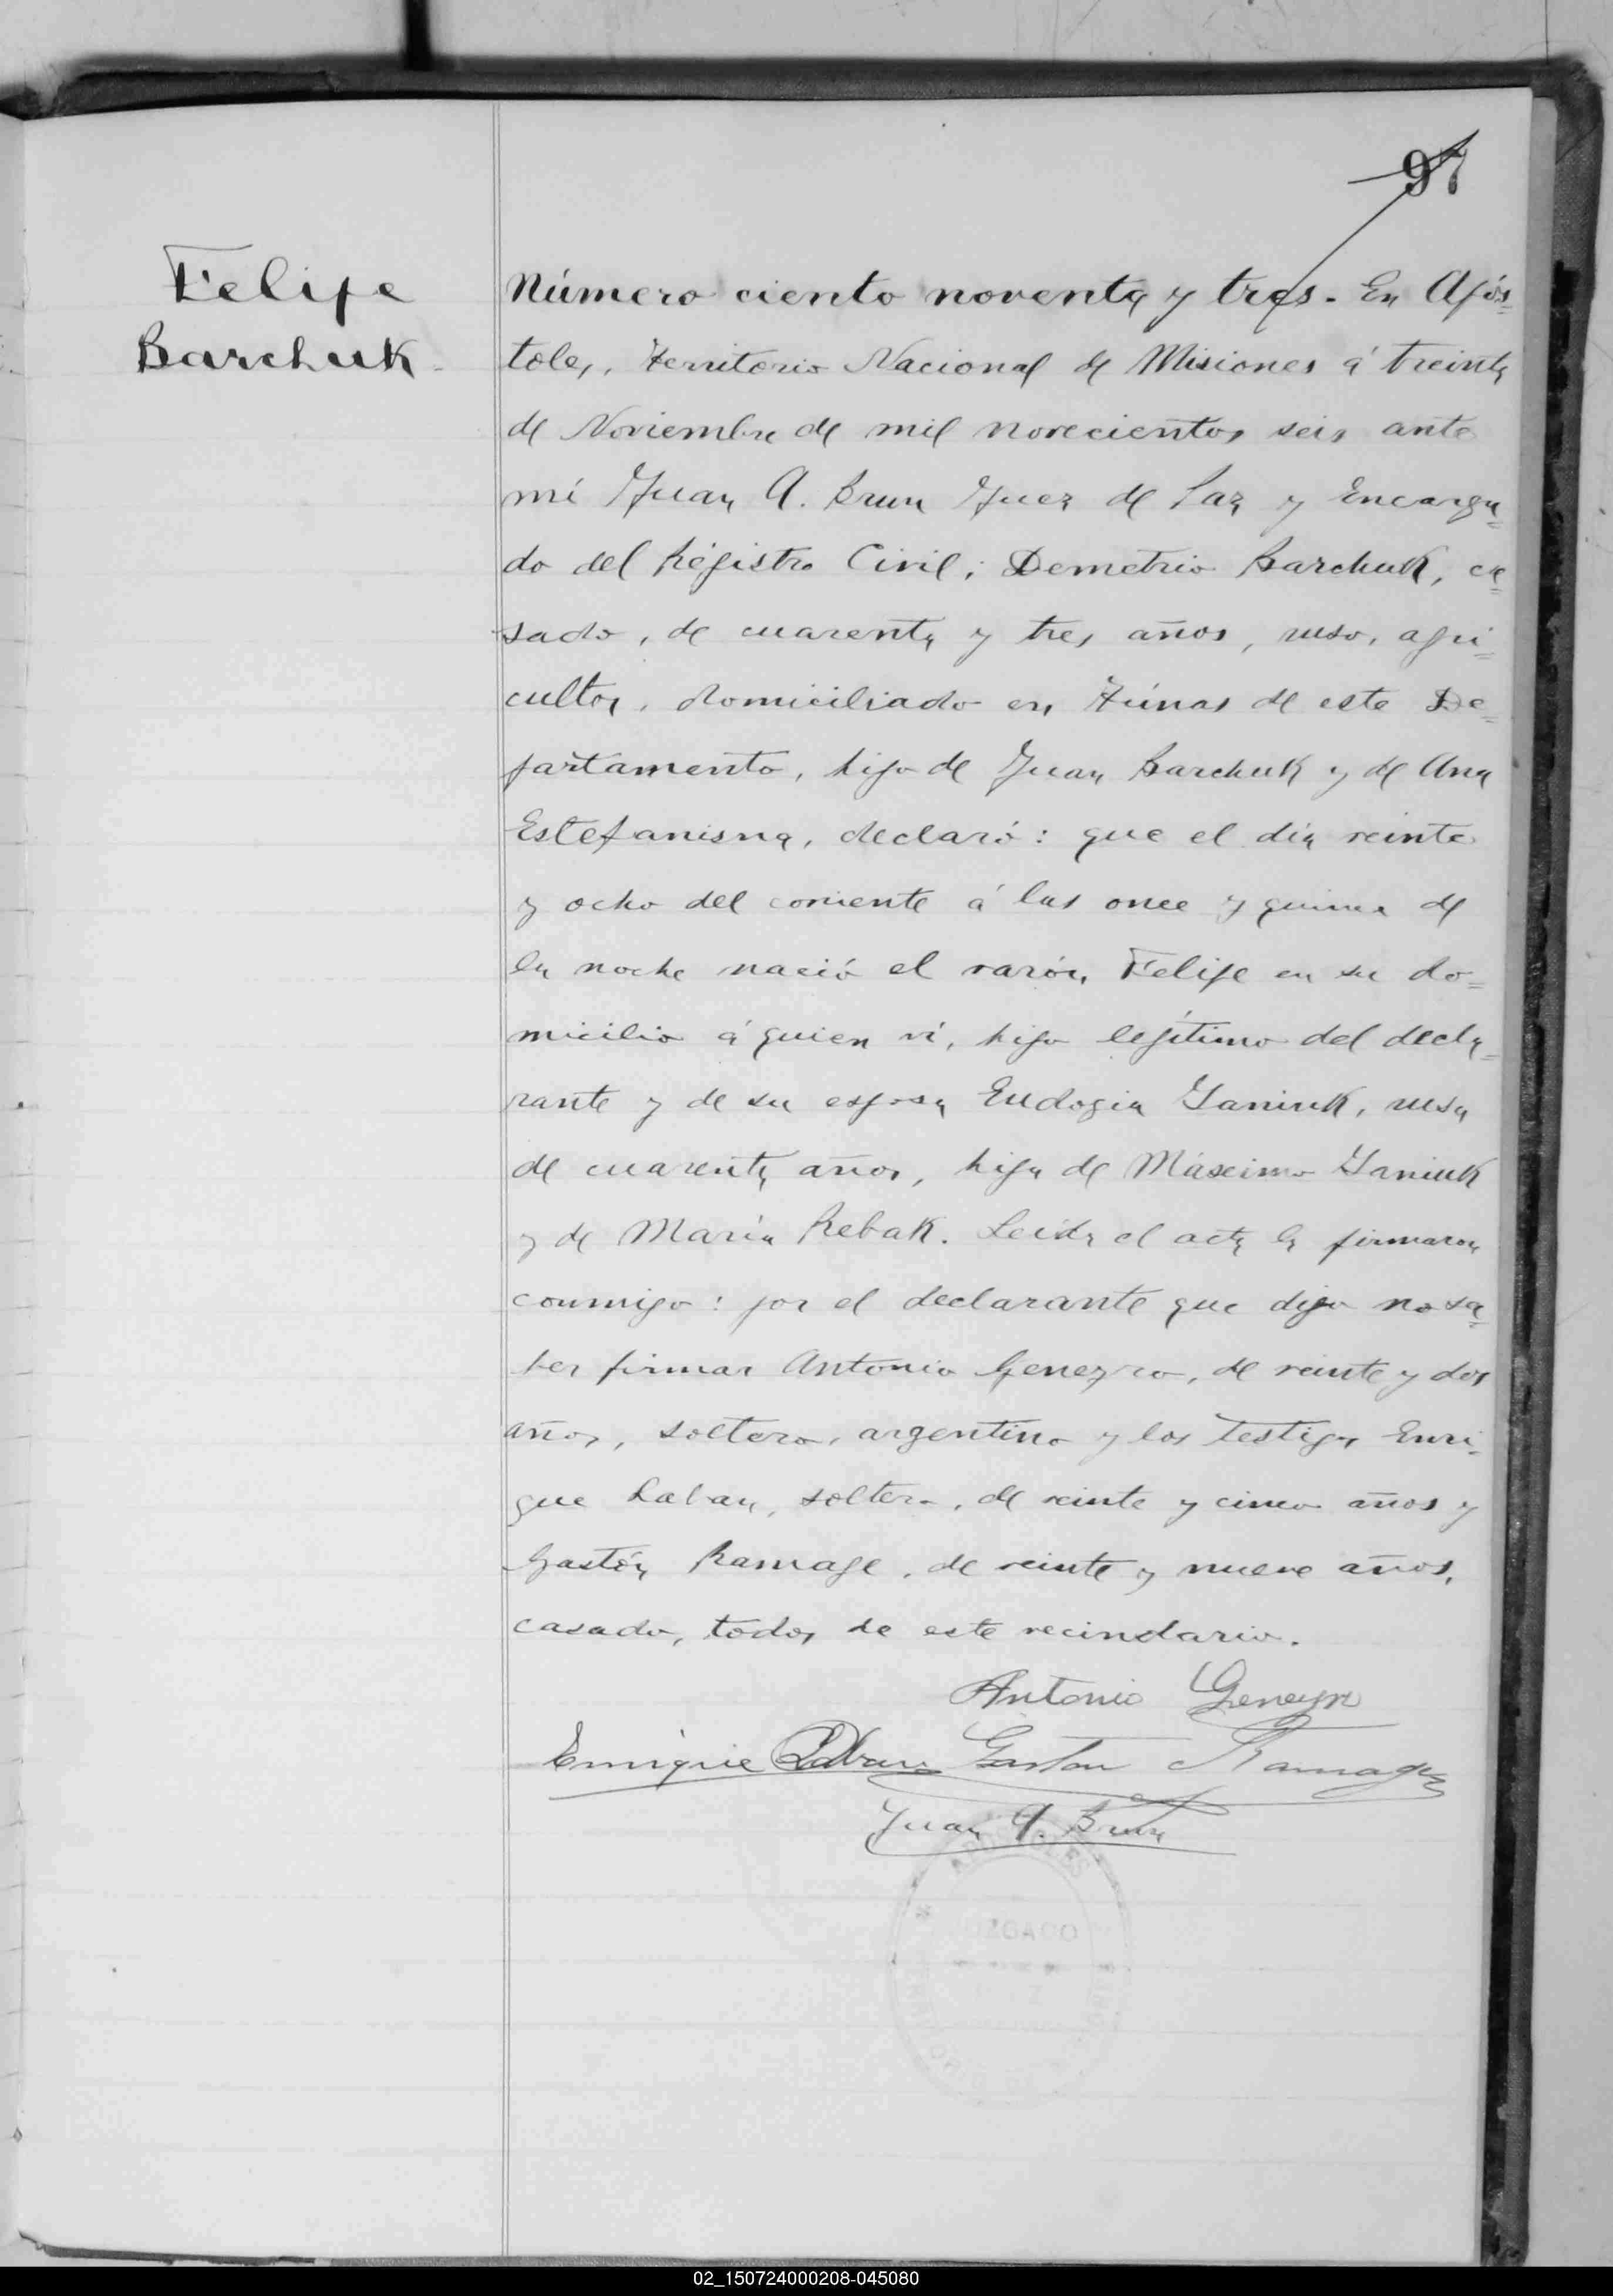 97
Felipe
Barchuk
Número ciento noventa y tres. En Após=
toles, Territorio Nacional de Misiones á treinta
de Noviembre de mil novecientos seis ante
mí Juan A. Brun Juez de Paz y Encarga=
do del Registro Civil; Demetrio Barchuk, ca=
sado, de cuarenta y tres años, ruso, agri=
cultor, domiciliado en Túnas de este De=
partamento, hijo de Juan Barchuk y de Ana
Estefanisna, declaró: que el día veinte
y ocho del corriente á las once y quince de
la noche nació el varón Felipe en su do=
micilio á quien ví, hijo legítimo del decla=
rante y de su esposa Eudogia Yaniuk, rusa
de cuarenta años, hija de Máscimo Yaniuk
y de María Rebak. Leida el acta la firmaron
conmigo: por el declarante que dijo no sa=
ber firmar Antonio Geneyro, de veinte y dos
años, soltero, argentino y los testigos Enri=
que Laban, soltero, de veinte y cinco años y
Gastón Ramage, de veinte y nueve años,
casado, todos de este vecindario.
Antonio Geneyro
Enrique Laban Gaston Ramage
Juan A. Brun
JUZGADO
02_150724000208-045080